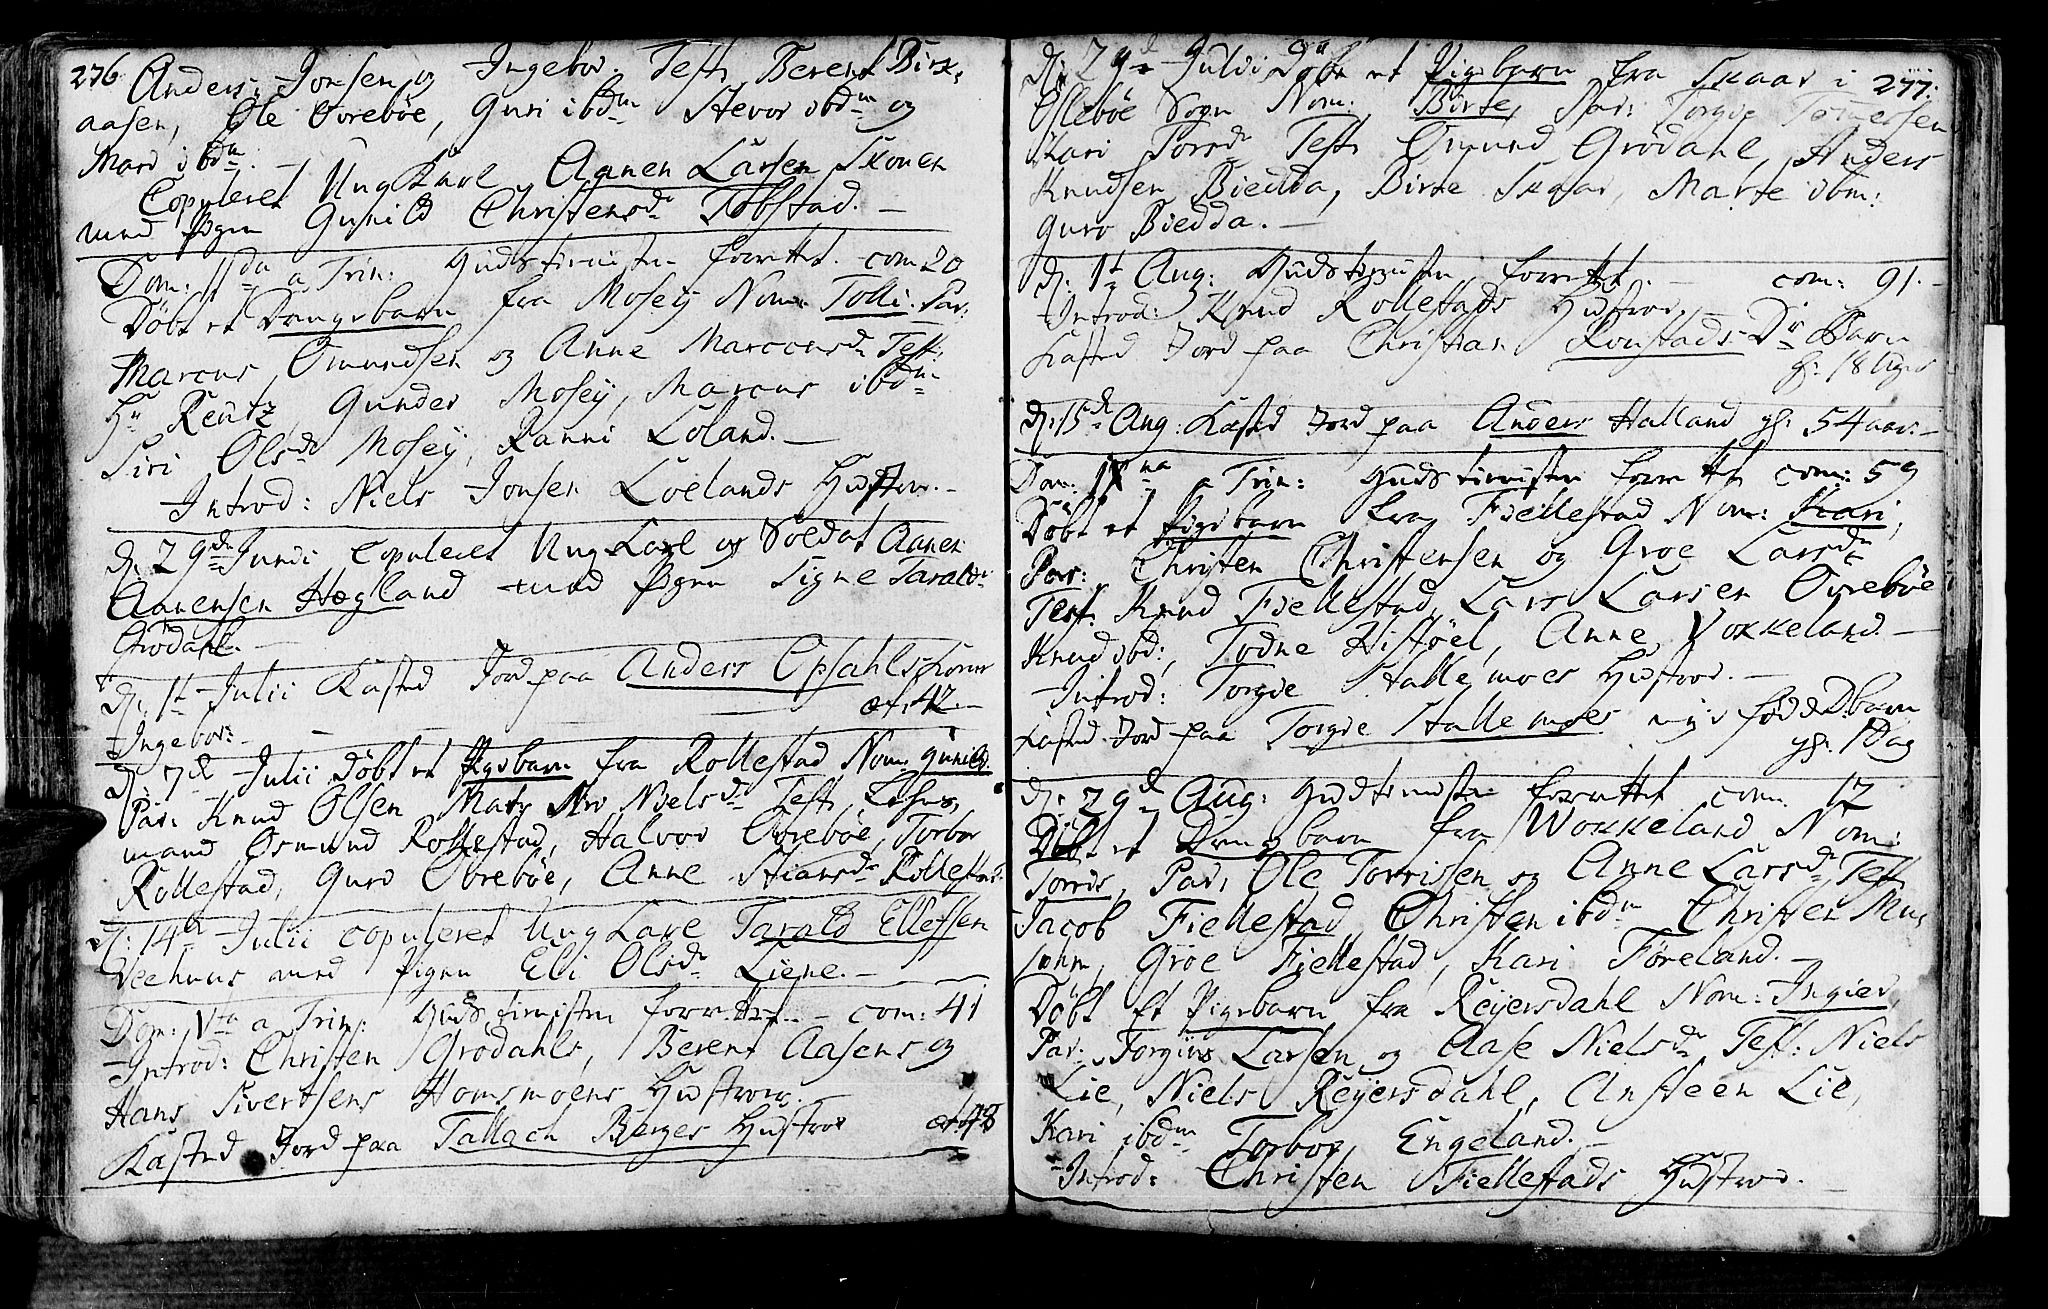 276.
Anders Jonsen og Ingebor. Test. Berent Birk-
aasen, Ole Øvrebøe, Guri ibdm Stevor ibdm og
Mari ibdm. —
Copuleret Ung Karl Aanen Larsen Skouen
med Pigen Gunild Christensdr Tobstad. —
Dom: 11da a Trin: Gudstienisten forrettet. com. 20
Døbt et Drengebarn fra Mosey Nom: Tolli. Par:
Marcus Omundsen og Anne Marcusdr Test:
Hr Reutz, Gunder Mosey, Marcus ibdm
Siri Olsdr Mosey, Ranni Loland. —
Introd: Niels Jonsen Loelands Hustroe. —
d. 29de Junii Copuleret Ung Karl og Soldat Aanen
Aanensen Hægland med Pigen Signe Taraldsdr
Grødahl. —
d. 1t Julii Kasted Jord paa Anders Opsahls Kone
Ingebor: — æt. 42. —
d: 7de Julii Døbt et Pigebarn fra Rollestad Nom: Gunild.
Par: Knud Olsen Nielsdr Test.
mand Osmund Rollestad, Halvor Øvrebøe, Torbor
Rollestad, Guro Øvrebøe, Anne Rollestad.
d: 14de Julii copuleret Ung Karl Tarald Ellefsen
Veehuus med Pigen Eli Olsdr Liene. —
Dom: Vta a Trin: Gudstienisten forrettet. — com: 41
Introd: Christen Grødahls, Berent Aasens og
Hans Sivertsens Homsmoens Hustroer. —
Kasted Jord paa Tallach Berges Hustroe æt. 48
277.
d: 29de Julii Døbt et Pigebarn fra Skaar i
Øslebøe Sogn Nom: Birte, Par: Torgie
Kari Torsdr Test: Omund Grødahl, Anders
Knudsen Biedda, Birte Skaar, Marte ibm:
Guro Biedda. —
d. 1t Aug: Gudstienisten forrettet. — com: 91. —
Introd: Knud Rollestads Hustroe.
Kasted Jord paa Christian Ronstads Dr Barn
g: 18 Uger
d: 15de Aug: Kasted Jord paa Anders Halland gl: 54 aar. —
Dom: a Trin: Gudstienisten forrettet com: 59
Døbt et Pigebarn fra Fiellestad Nom: Kari,
Par: Christen Christensen og Groe Larsdr
Test: Knud Fiellestad, Lars Larsen Øvrebøe
Knud ibd:, Todne Histøel, Anne Vokkeland. —
Introd: Torgie Hallemoes Hustroe. —
Kasted Jord paa Torgie Hallemoes nye fødde D:barn
gl: 1 Dag
d: 29de Aug: Gudstienisten forrettet com. 12
Døbt et Drengebarn fra Wokkeland Nom:
Torris, Par: Ole Torrissen og Anne Larsdr Test
Jacob Fiellestad, Christen ibdm Christen Mu-
Groe Fiellestad, Kari Føreland. —
Døbt Et Pigebarn fra Reyersdahl Nom: Ingier,
Par: Torgius Larsen og Aase Nielsdr Test: Niels
Lie, Niels Reyersdahl, Ansteen Lie,
Kari ibdm Torbor Engeland. —
Introd: Christen Fiellestads Hustroe. —